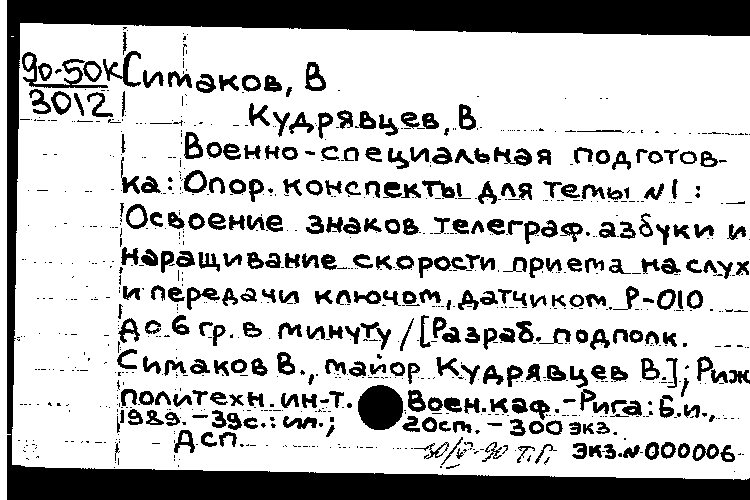 90-50К
3012
Симаков, В
Кудрявцев, В
Военно-специальная подготов-
ка: Опор. конспекты для темы №1:
Освоение знаков телеграф. азбуки и
наращивание скорости приема на слух
и передачи ключом, датчиком Р-010
до 6 гр. в минуту / [Разраб. подполк.
Симаков В., майор Кудрявцев В.]; Риж
политехн. ин-т. Воен. каф. - Рига: Б.и.,
1989. - 39с.: ил.; 20см. - 300 экз.
ДСП.
30/V-90 Т.Г. Экз.№ 000006